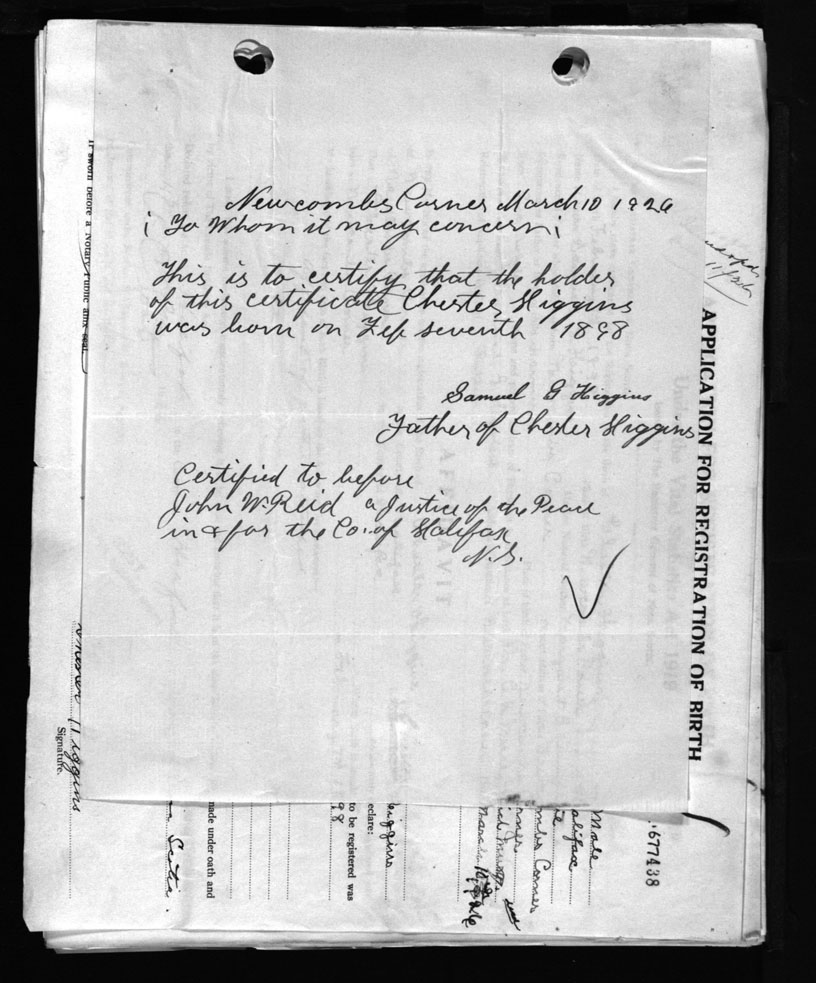 Newcombs Corner March 10 1926
To Whom it may concern
This is to certify that the holder
of this certificate Chester Higgins
was born on Feb seventh 1898
Samuel G Higgins
Father of Chester Higgins
Certified to before
John W. Reid a Justice of the Peace
in & for the Co. of Halifax
N.S.
APPLICATION FOR REGISTRATION OF BIRTH
677438
Male
alifax
ombs Corner
iggins
eclare:
to be registered was
98
nade under oath and
Scotia.
Higgins
Signature.
If sworn before a Notary Public affix seal